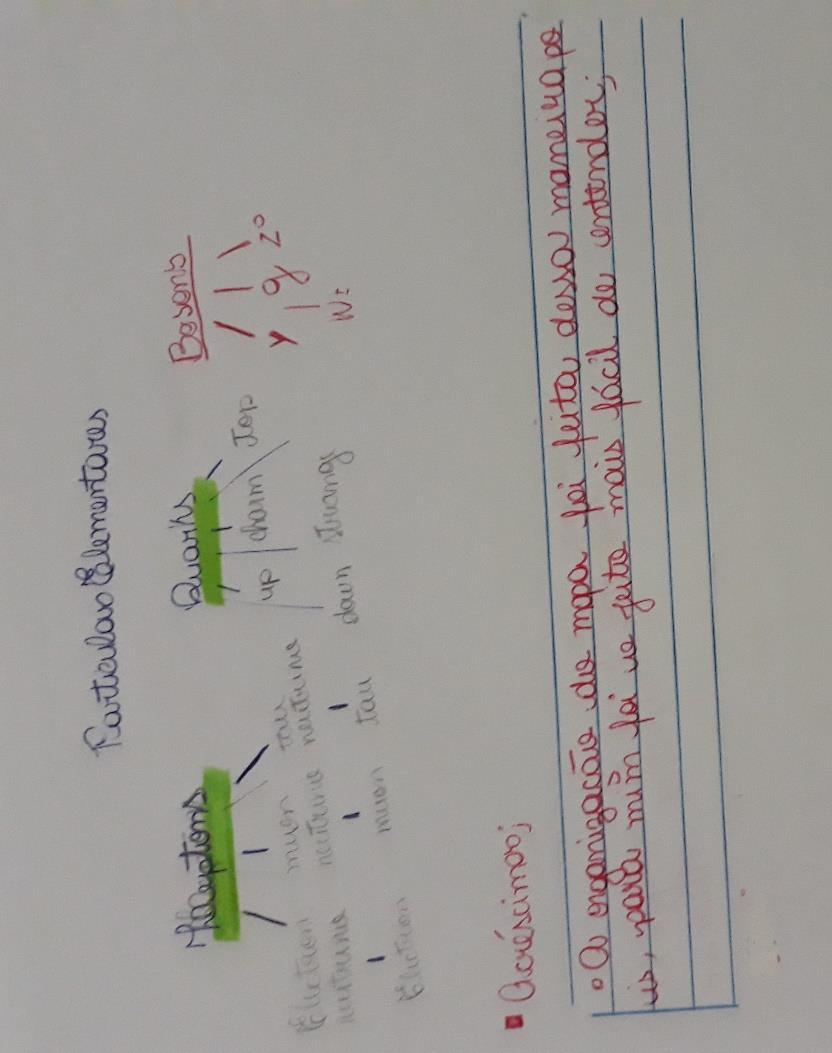 Particulas Elementares
Leptons
Quarks
Bosons
Electron neutrino
muon neutrino
tau neutrino
up
charm
Top
γ
g
Z⁰
W±
Electron
muon
tau
down
strang
▪ Acréscimos;
• A organização do mapa foi feita dessa maneira po
is, para mim foi o jeito mais fácil de entender;